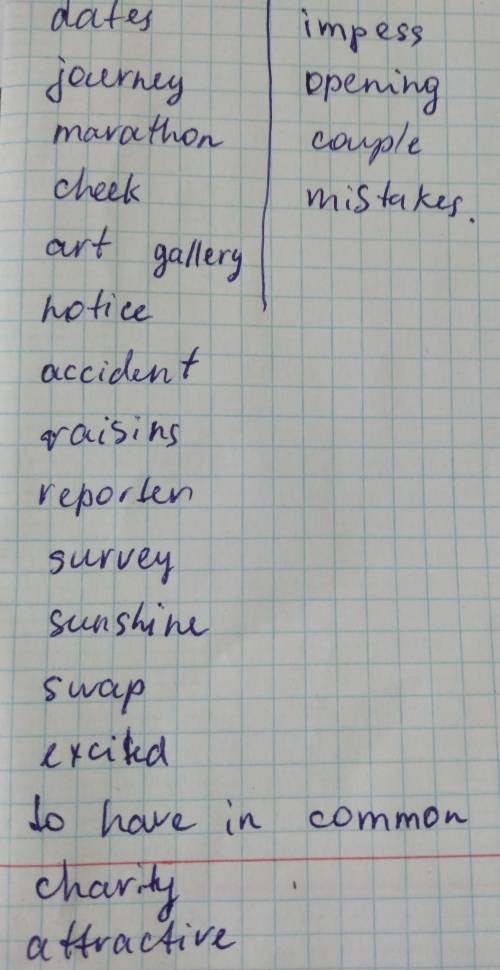 dates
journey
marathon
cheek
art gallery
notice
accident
raisins
reporter
survey
sunshine
swap
excited
to have in common
charity
attractive
impess
opening
couple
mistakes.